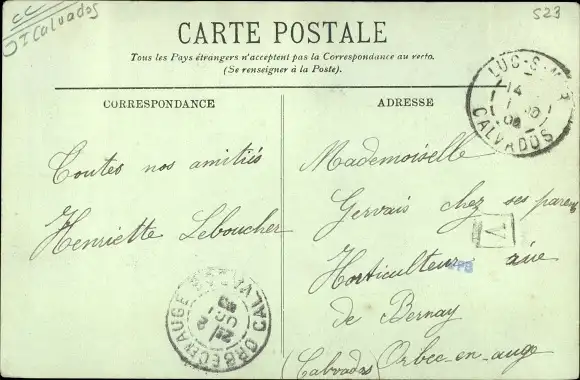 CC
OT Calvados
523
CARTE POSTALE
Tous les Pays étrangers n'acceptent pas la Correspondance au recto.
(Se renseigner à la Poste).
CORRESPONDANCE
ADRESSE
LUC-S-MER
14
CALVADOS
Toutes nos amitiés
Henriette Leboucher
Mademoiselle
Gervais chez ses parents
V
Horticulteur rue
de Bernay
(Calvados) Orbec-en-auge
ORBEC EN AUGE
CALVADOS